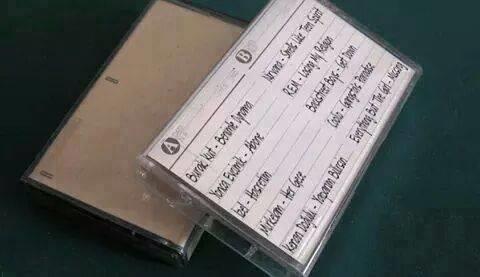 A
Burak Kut - Benimle Oynama
Yonca Evcimik - Abone
İzel - Hasretim
Mirkelam - Her Gece
Kenan Doğulu - Yaparım Bilirsin
B
Nirvana - Smells Like Teen Spirit
R.E.M - Losing My Religion
Backstreet Boys - Get Down
Coolio - Gangsta's Paradise
Everything But The Girl - Missing